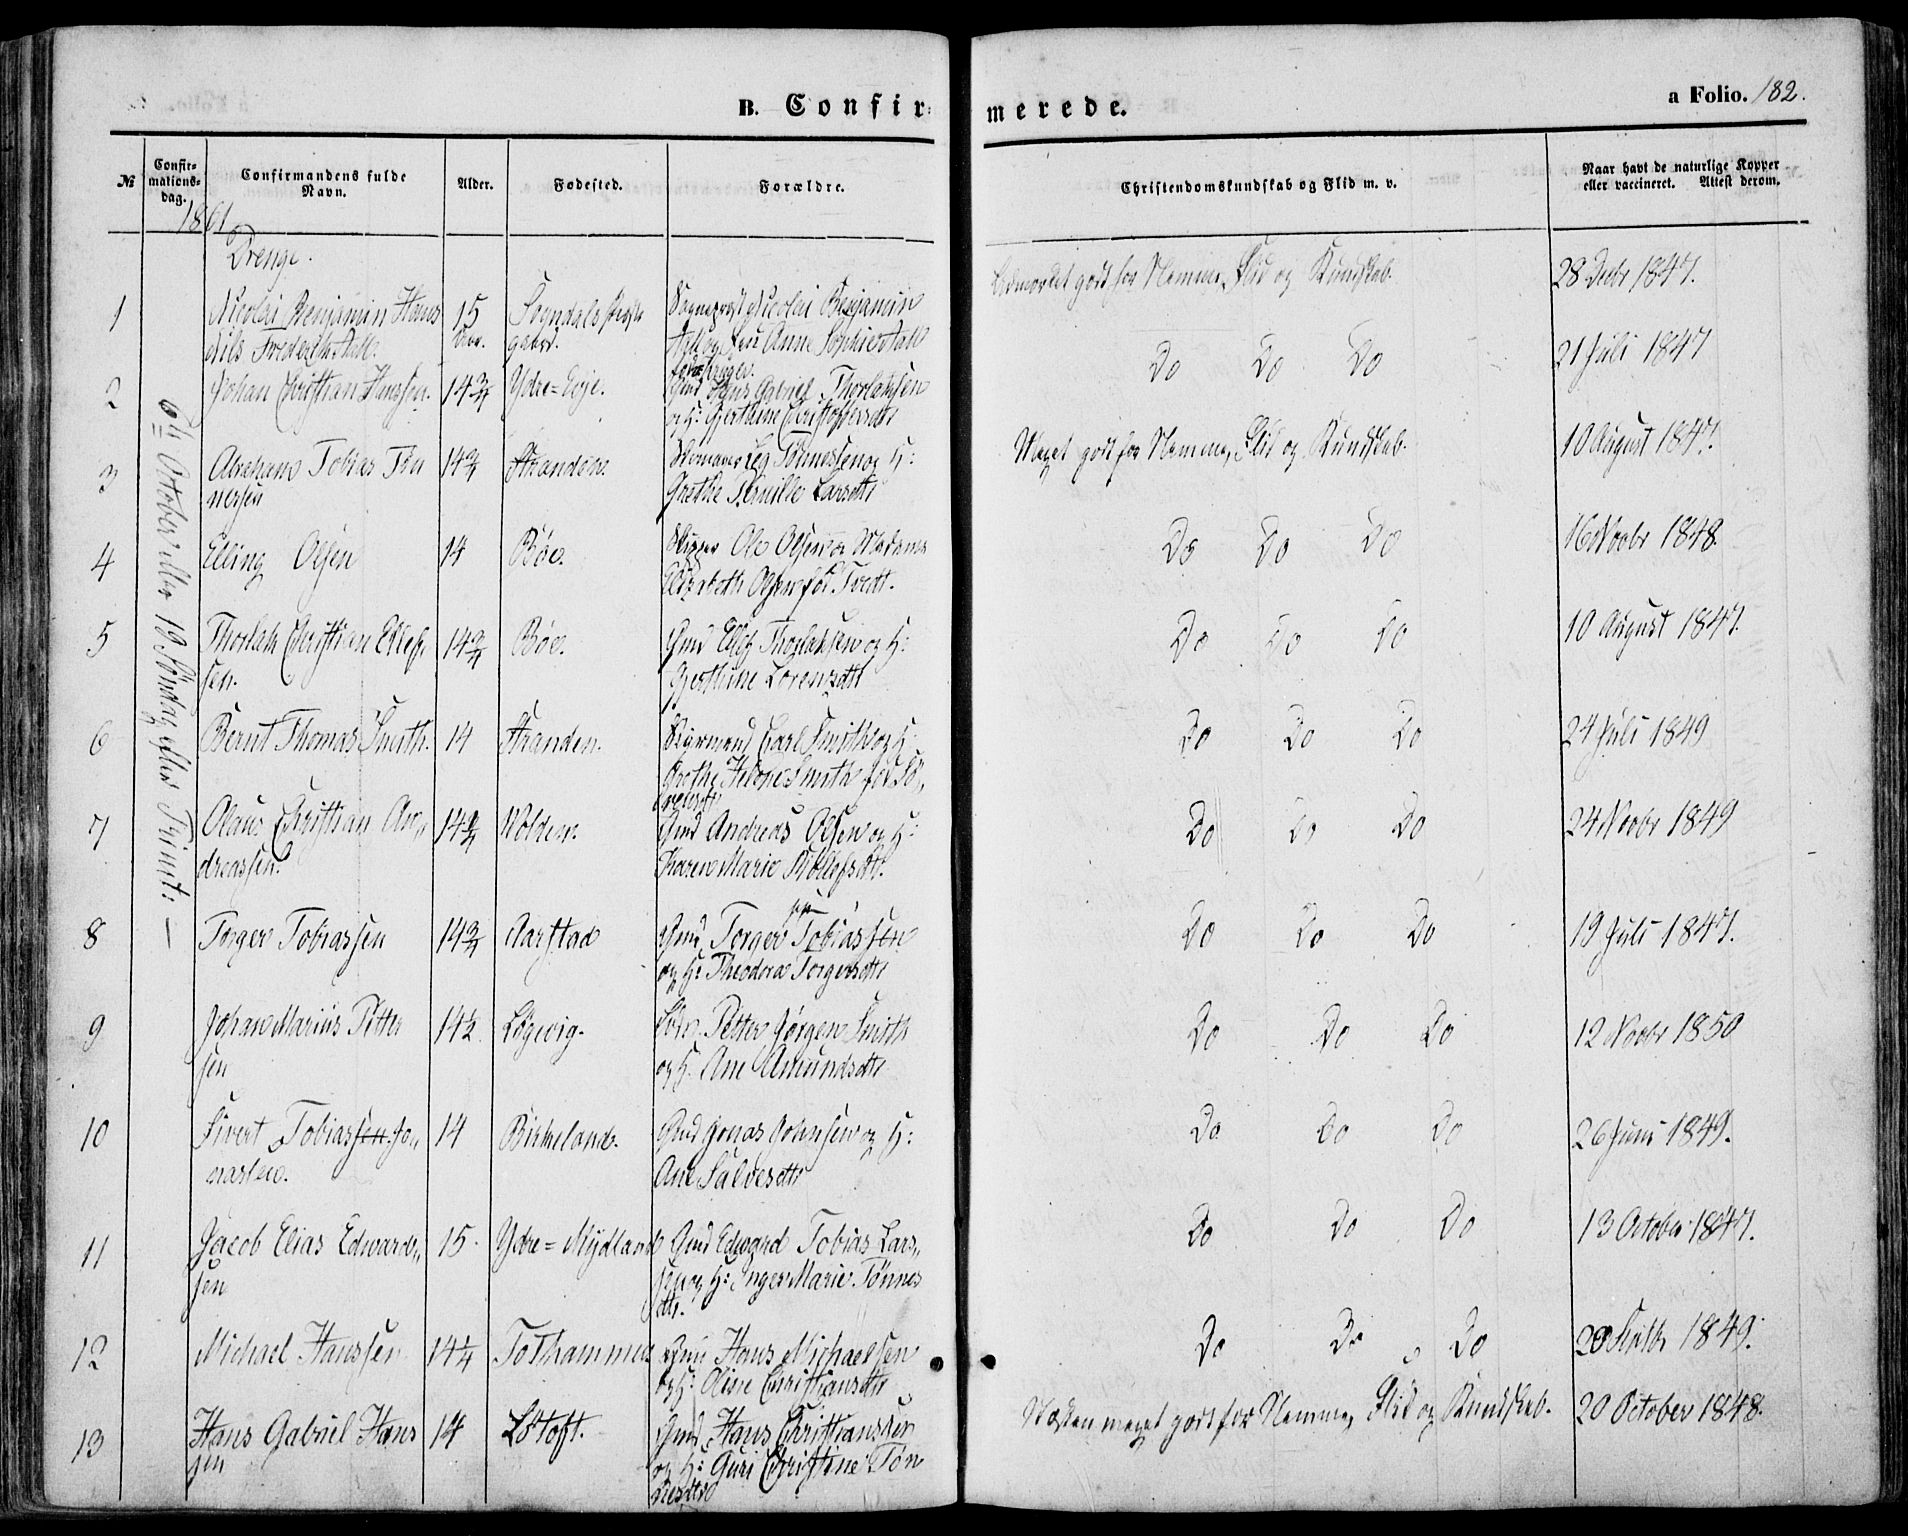 B. Confir-
merede.
a Folio. 182.
№
Confir-
mations-
dag.
Confirmandens fulde
Navn.
Alder.
Fødested.
Forældre.
Christendomskundskab og Flid m. v.
Naar havt de naturlige Kopper
eller vaccineret. Attest derom.
1861
Drenge.
6te October eller 19 Søndag efter Trinit: —
1
Nicolai Benjamin Hans
Nils Frederik Aall.
15
Aar.
Sogndals
gaard.
Sognepræst Nicolai Benjamin
Aall og Fru Anne Sophie Aall
Udmærket godt for Nemme, Flid og Kundskab.
28 Decbr 1847.
2
Johan Christian Hanssen.
14 3/4
Ydre=Eeje.
Gmd Hans Gabriel Thorlaksen
og H: Gjerthine Christophersdttr
Do Do Do
21 Juli 1847
3
Abraham Tobias Tøn
nessen
14 3/4
Stranden.
Tønnessen og H:
Grethe Pernille Larsdttr
Meget godt for Nemme, Flid og Kundskab.
10 August 1847.
4
Elling Olsen
14
Bøe.
Skipper Ole Olsen og Madame
Elizabeth Olsen fød. Tvedt.
Do Do Do
16 Novbr 1848.
5
Thorlak Christian Ellef-
sen.
14 3/4
Bøe.
Gmd Ellef Thorlaksen og H:
Gjerthine Lorensdttr
Do Do Do
10 August 1847.
6
Bernt Thomas Smith.
14
Stranden.
Styrmand Carl Smith og H:
Grethe Helene Smith
Do Do Do
24 Juli 1849
7
Olaus Christian An,,
dreassen.
14 3/4
Wolden.
Gmd Andreas Olsen og H:
Karen Marie
Do Do Do
24 Novbr 1849
8
Torger Tobiassen
14 3/4
Aarstad
Gmd Torger Tobiassen
og H: Theodora Torgersdttr
Do Do Do
19 Juli 1847.
9
Johan Marius Petter
sen
14 1/2
Løgevig.
Petter Jørgen Smith
og H. Ane Amundsdttr
Do Do Do
12 Novbr 1850
10
Sivert Tobiassen Jo,,
nassen.
14
Birkeland.
Gmd Jonas Johnsen og H:
Ane Salvesdttr
Do Do Do
26 Juni 1849.
11
Jacob Elias Edwards,,
sen
15.
Ydre=Mydland
Gmd Edward Tobias Lars,,
sen og H: Inger Marie Tønnes
dttr.
Do Do Do
13 October 1847.
12
Michael Hanssen
14 1/4
Tothammer
Gmd Hans Michaelsen
og H: Olene Christiansdttr
Do Do Do
20 Septbr 1849.
13
Hans Gabriel Hans
sen
14
Løtoft.
Gmd Hans Christianssen
og H: Guri Christine Tøn
nesdttr
Næsten meget godt for Nemme, Flid og Kundskab.
20 October 1848.